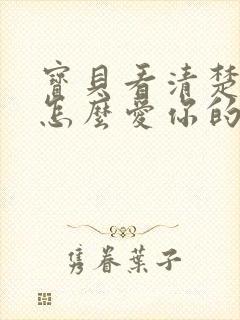 寶貝看清楚
怎麼愛你的
雋眷葉子